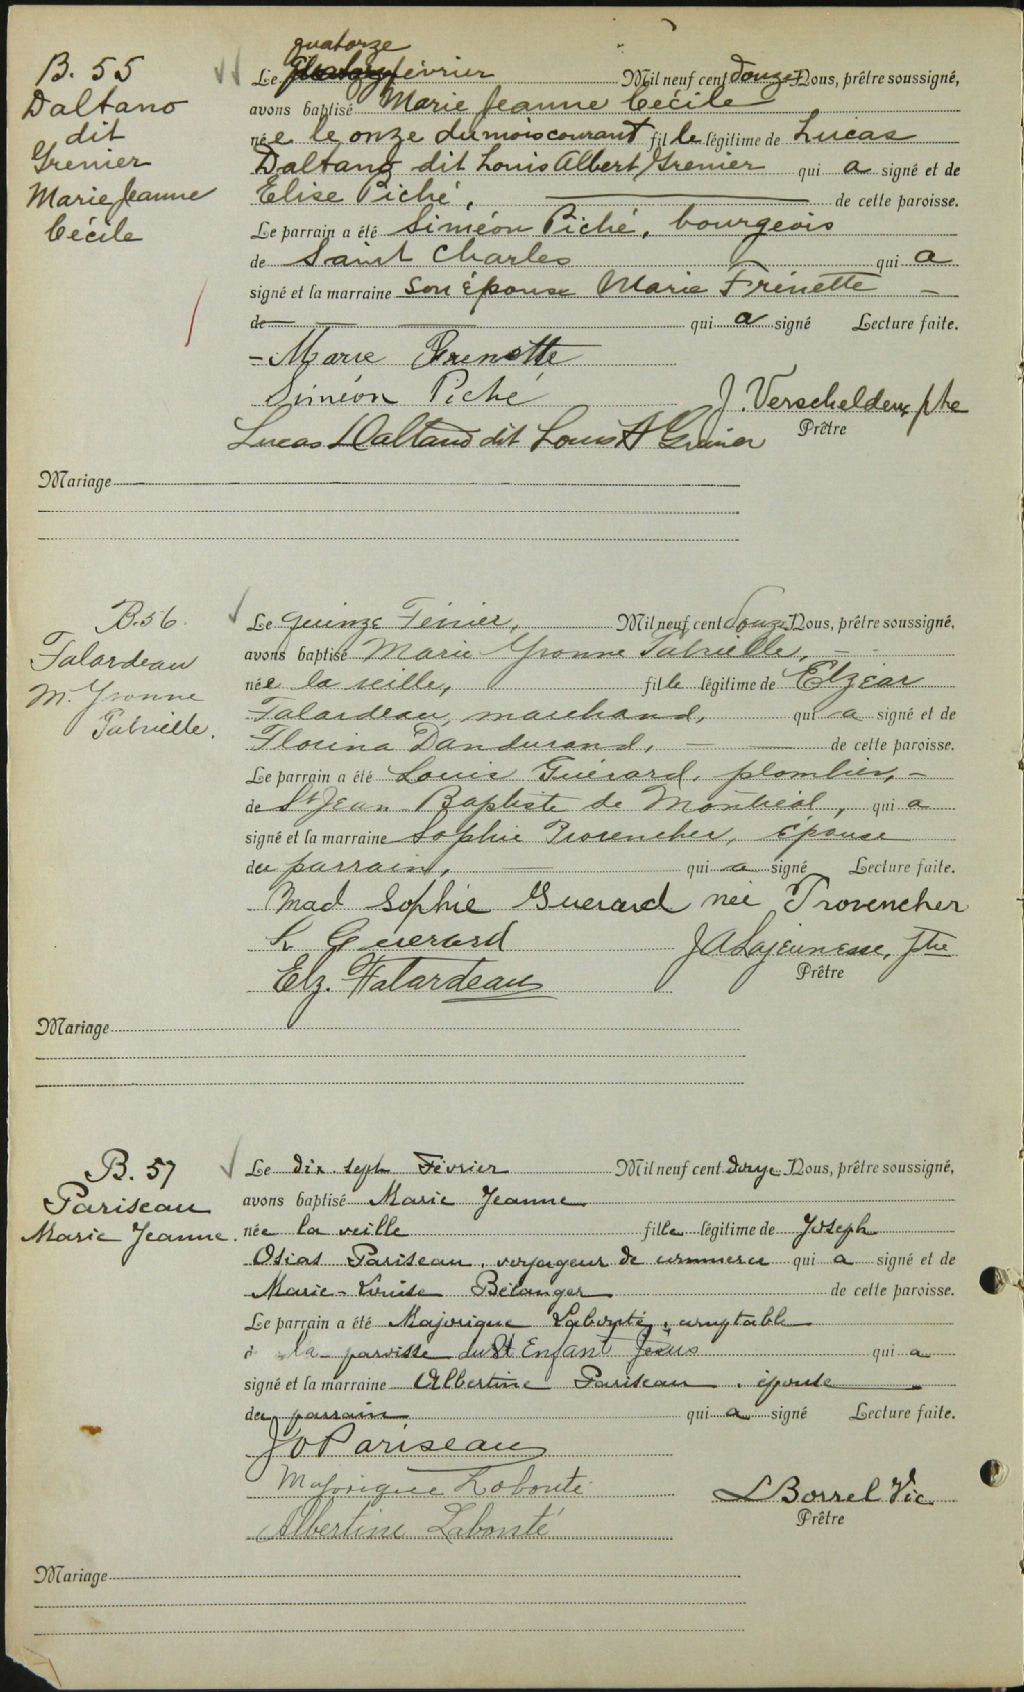 B. 55
Daltano
dit
Grenier
Marie Jeanne
Cécile
quatorze
Le février Mil neuf cent douze Nous, prêtre soussigné,
avons baptisé Marie Jeanne Cécile
née le onze du mois courant fille légitime de Lucas
Daltano dit Louis Albert Grenier qui a signé et de
Elise Piché, de cette paroisse.
Le parrain a été Siméon Piché, bourgeois
de Saint Charles qui a
signé et la marraine son épouse Marie Frénette
de qui a signé Lecture faite.
Marie Frenette
Siméon Piché
J. Verschelden, ptre
Prêtre
Lucas Daltano dit Louis A Grenier
Mariage
B. 56.
Falardeau
M. Yvonne
Gabrielle.
Le quinze Février, Mil neuf cent douze Nous, prêtre soussigné,
avons baptisé Marie Yvonne Gabrielle,
née la veille, fille légitime de Elzéar
Falardeau, marchand, qui a signé et de
Florina Dandurand, de cette paroisse.
Le parrain a été Louis Guérard, plombier,
de St Jean Baptiste de Montréal, qui a
signé et la marraine Sophie Provencher, épouse
du parrain, qui a signé Lecture faite.
Mad Sophie Guerard née Provencher
L Guerard
J A Lajeunesse, ptre
Prêtre
Elz. Falardeau
Mariage
B. 57
Pariseau
Marie Jeanne.
Le dix sept Février Mil neuf cent douze Nous, prêtre soussigné,
avons baptisé Marie Jeanne
née la veille fille légitime de Joseph
Osias Pariseau, voyageur de commerce qui a signé et de
Marie-Louise Bélanger de cette paroisse.
Le parrain a été Majorique Labonté, comptable
d la paroisse du St Enfant Jésus qui a
signé et la marraine Albertine Pariseau, épouse
du parrain qui a signé Lecture faite.
J O Pariseau
Majorique Labonté
L Borrel Vic.
Prêtre
Albertine Labonté
Mariage